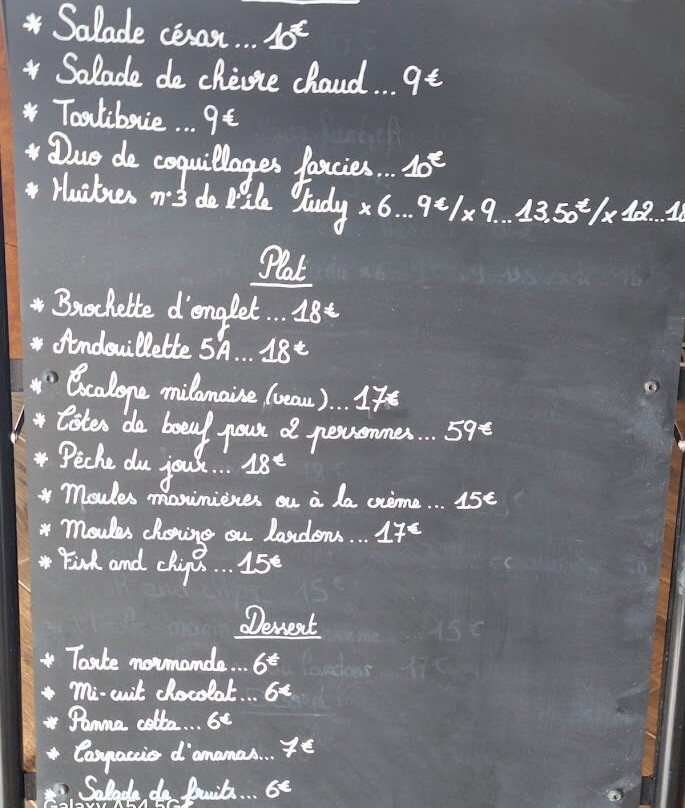 * Salade césar... 10€
* Salade de chèvre chaud... 9€
* Tartibrie... 9€
* Duo de coquillages farcies... 10€
* Huîtres n°3 de l'île Tudy x6...9€/x9...13,50€/x12...18
Plat
* Brochette d'onglet... 18€
* Andouillette 5A... 18€
* Escalope milanaise (veau)... 17€
* Côtes de boeuf pour 2 personnes... 59€
* Pêche du jour... 18€
* Moules marinières ou à la crème... 15€
* Moules chorizo ou lardons... 17€
* Fish and chips... 15€
Dessert
* Tarte normande... 6€
* Mi-cuit chocolat... 6€
* Panna cotta... 6€
* Carpaccio d'ananas... 7€
* Salade de fruits... 6€
Galaxy A54 5G